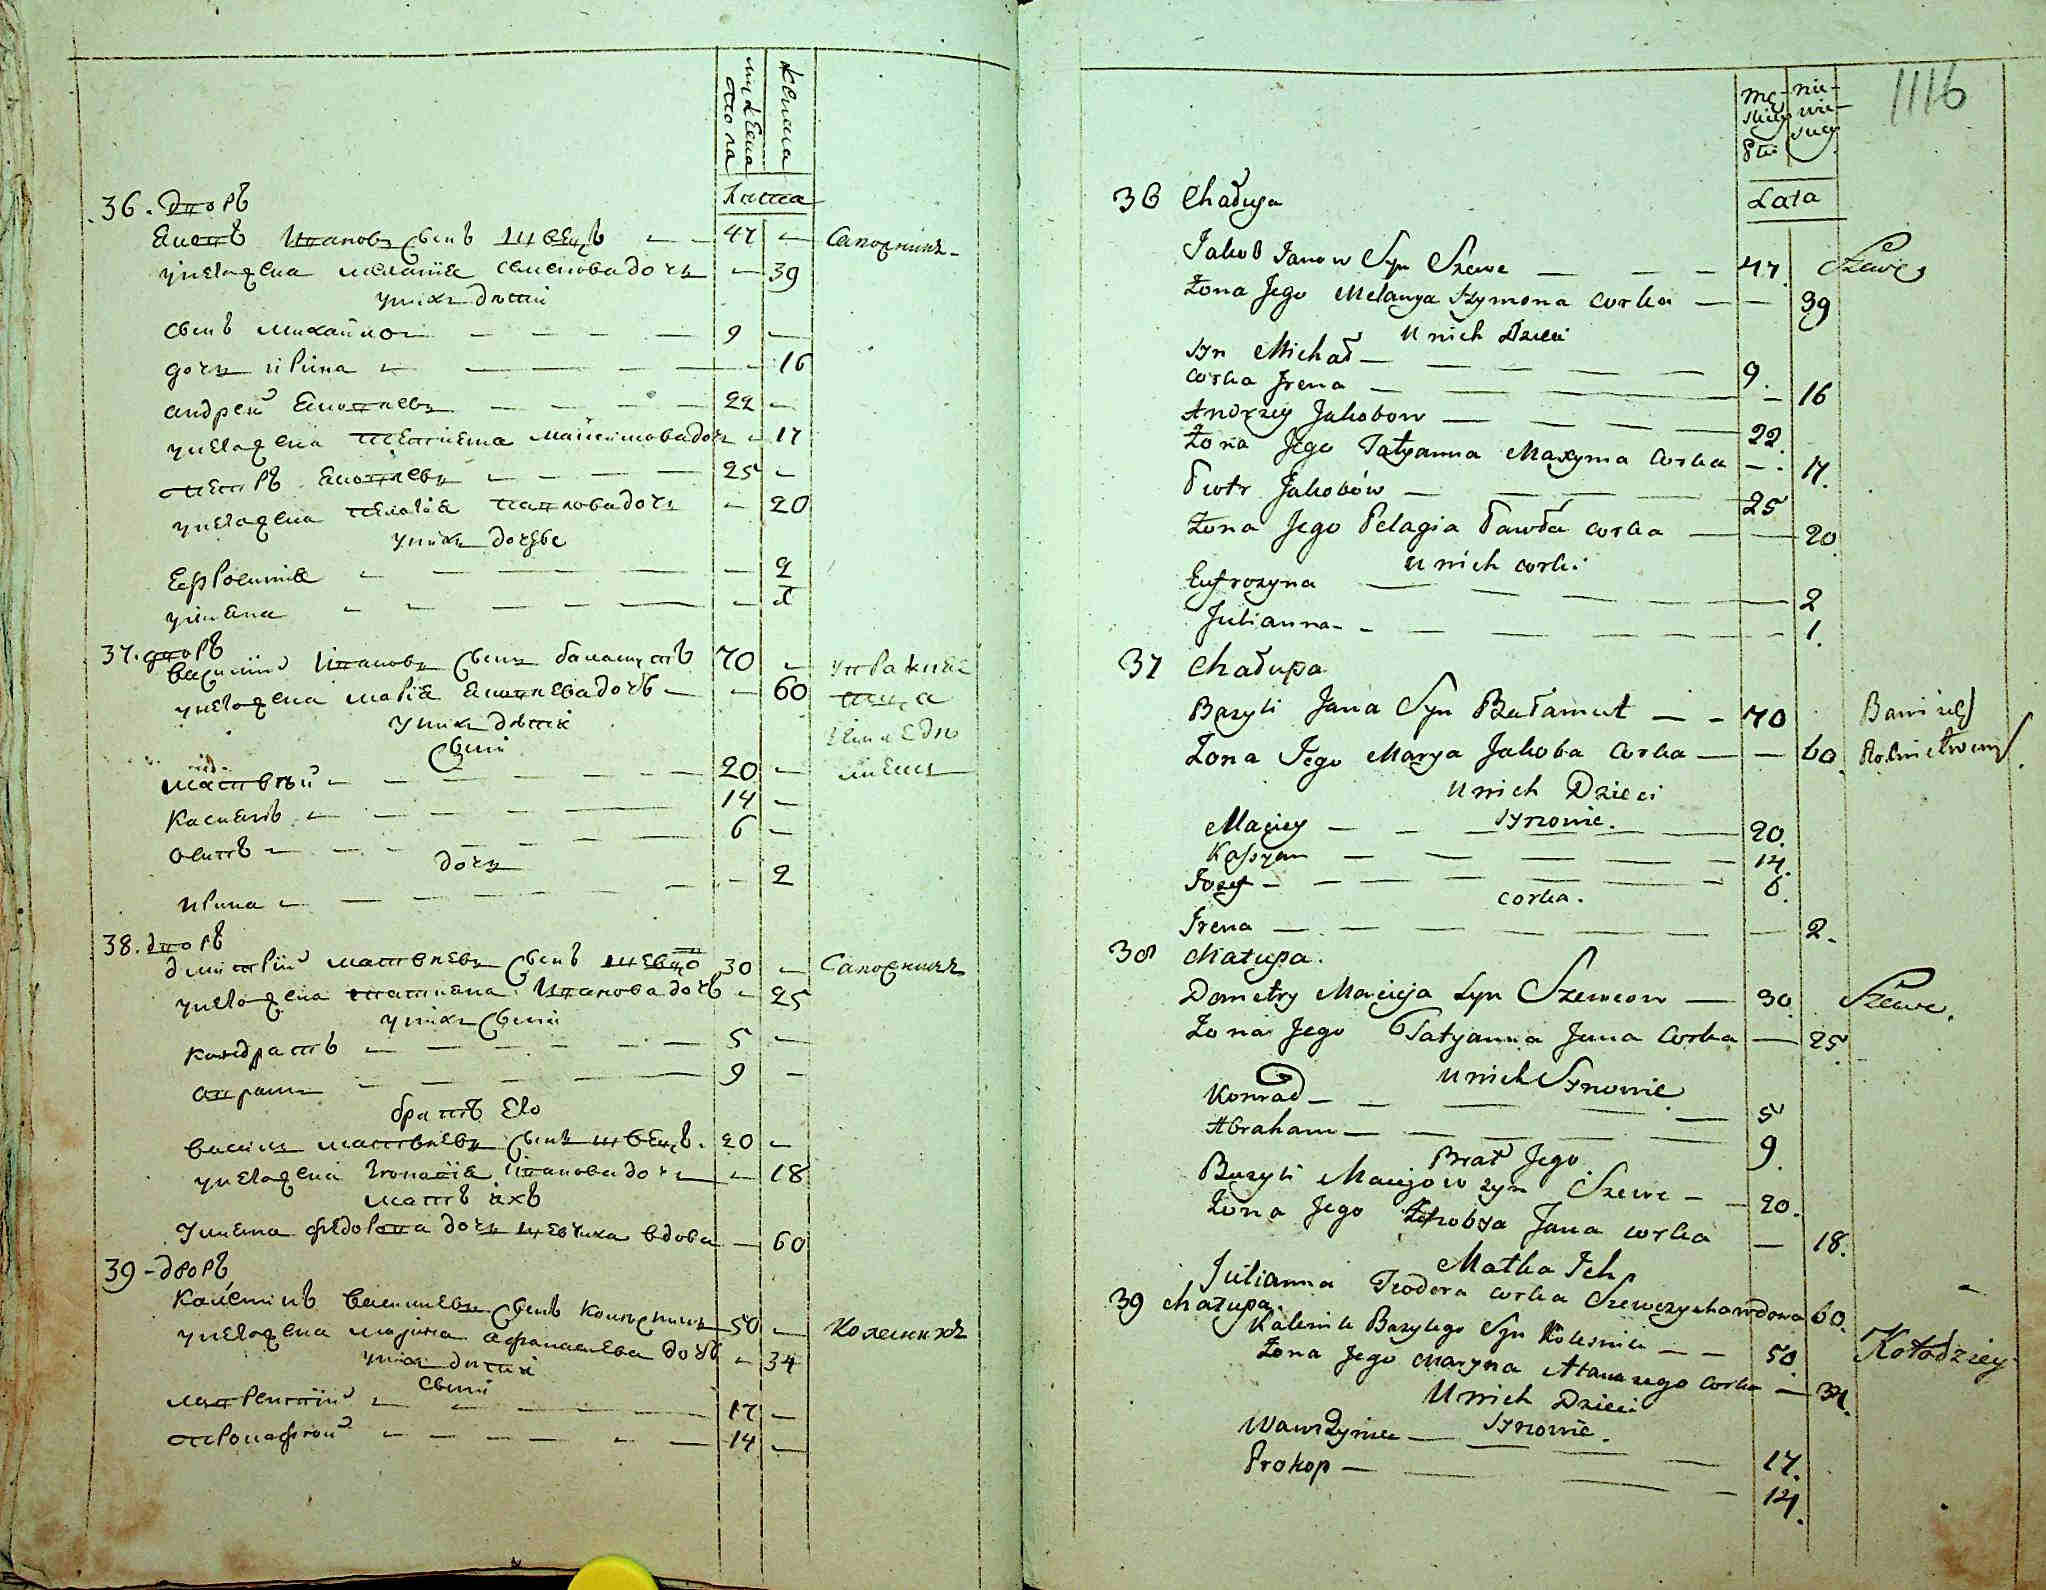 мужеска
пола
женска
Лѣта
36. дворъ
Яковъ Ивановъ сынъ Швецъ — — 47 — Сапожникъ
у него жена меланія семенова дочь — 39
у нихъ дѣти
сынъ михайло — — — — 9 —
дочь ирина — — — — — 16
андрей Яковлевъ — — — — 22 —
у него жена татіяна максимова дочь — 17
петръ Яковлевъ — — — — 25 —
у него жена пелагія павлова дочь — 20
у нихъ дочери
Ефросинія — — — — — 2
уліяна — — — — — 1
37. дворъ
василій Ивановъ сынъ баламутъ 70 —
у него жена марія Яковлева дочь — 60
у нихъ дѣти
сыни
матвѣй — — — — — 20 —
Касіянъ — — — — — 14 —
осипъ — — — — — 6 —
дочь
ирина — — — — — 2
38. дворъ
дмитрій матвѣевъ сынъ 30 — Сапожникъ
у него жена татіяна Иванова дочь — 25
у нихъ сыни
кондратъ — — — — — 5 —
аврамъ — — — — — 9 —
братъ его
василь матвѣевъ сынъ швецъ. 20 —
у него жена Иванова дочь — 18
мать ихъ
Уліяна федорова дочь шевчиха вдова — 60
39 - дворъ
Калѣникъ василіевъ сынъ колѣсникъ 50 — Колесникъ
у него жена марина афанасіева дочь — 34
у нихъ дѣти
сыни
лаврентій — — — — 17 —
прокофій — — — — — 14 —
1116
mę-
skiey
Płci
nie-
wie-
sciey
Lata
36 Chałupa
Jakob Janow Syn Szewc — — — 47. Szewc
Żona Jego Melanya Szymona corka — — 39
U nich Dzieci
Syn Michał — — — — — 9.
corka Irena — — — — 16
Andrzey Jakobow — — — — 22.
Żona Jego Tatyanna Maxyma Corka — 17.
Piotr Jakobów — — — — 25
Żona Jego Pelagia Pawła corka — — 20.
u nich corki
Eufrozyna — — — — — 2
Julianna — — — — — 1.
37 Chałupa
Bazyli Jana Syn Bałamut — — 70 Bawi się
Żona Jego Marya Jakoba Corka — — 60. Rolnictwem
U nich Dzieci
Synowie.
Maciey — — — — 20.
Kassyan — — — — — 14.
Jozef — — — — — 6.
Corka.
Irena — — — — — 2.
38 chałupa.
Dometry Macieja Syn Szewcow — 30. Szewc.
Żona Jego Tatyanna Jana Corka — 25.
U nich Synowie
Konrad — — — — 5
Abraham — — — — 9.
Brat Jego
Bazyli Maciejow syn Szewc — — 20.
Żona Jego Jana corka — 18.
Matka Ich
Julianna Teodora corka Szewczycha wdowa 60.
39 chałupa.
Kalenik Bazylego Syn Kolesnik — — 50. Kołodziey
Żona Jego Maryna Atanazego Corka — 34.
U nich Dzieci
Synowie.
Wawrzyniec — — — 17.
Prokop — — — — 14.